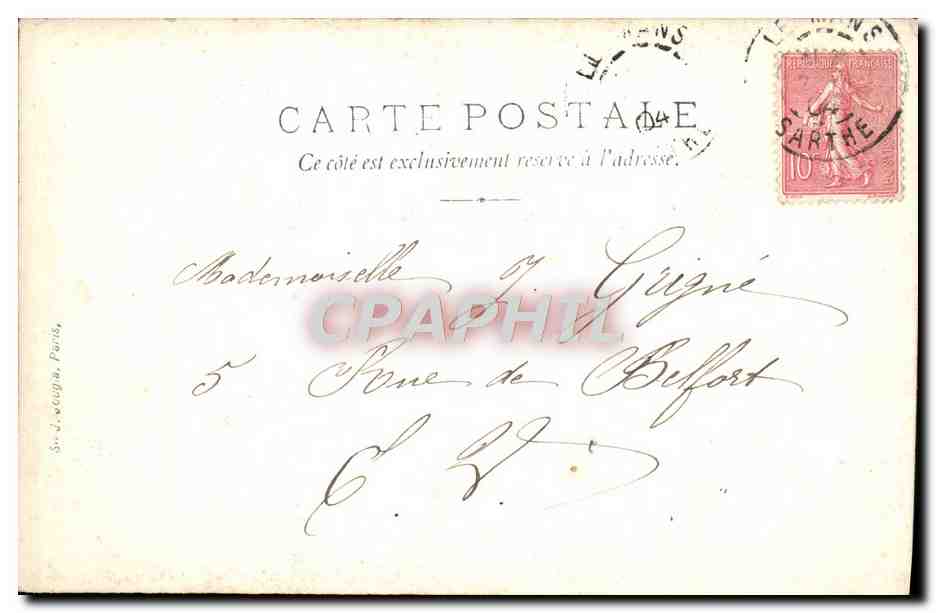 LE MANS
04
LE MANS
SARTHE
REPUBLIQUE FRANÇAISE
10
CARTE POSTALE
Ce côté est exclusivement reserve à l'adresse.
Mademoiselle J. Grigné
CPAPHIL
5 Rue de Belfort
E. V.
Sté J. Jougla, Paris.